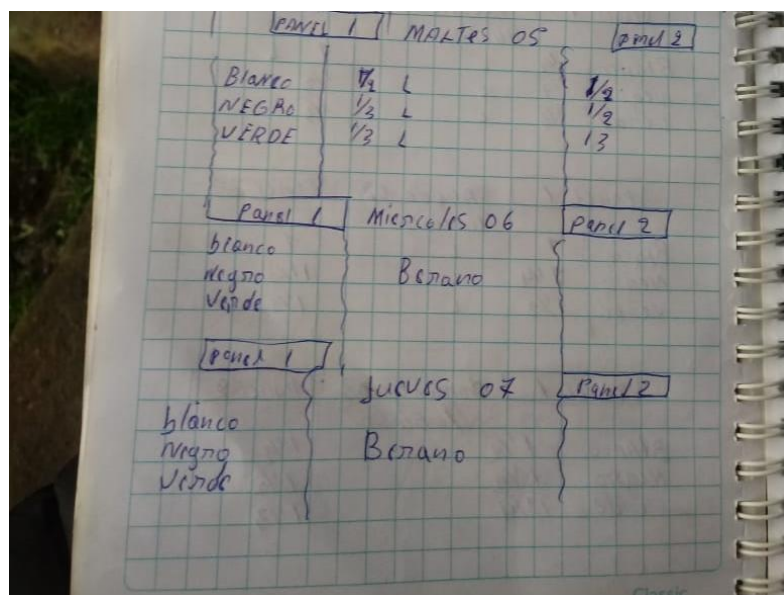 PANEL 1 MARTES 05 panel 2
Blanco 1/2 L 1/2
NEGRO 1/3 L 1/2
VERDE 1/3 L 13
Panel 1 Miercoles 06 Panel 2
blanco
Negro Berano
Verde
panel 1
Jueves 07 Panel 2
blanco
Negro Berano
Verde
Classic